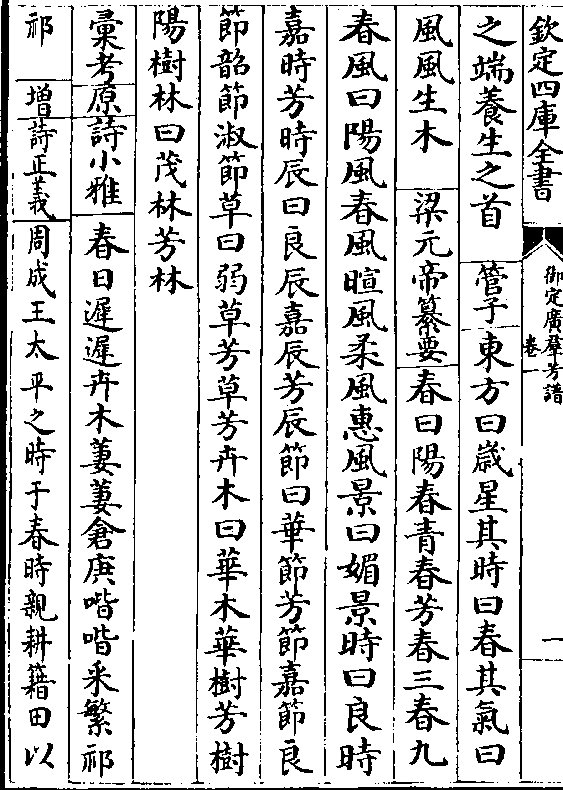 欽定四庫全書
御定廣羣芳譜
卷一
一
之端養生之首 管子東方曰歲星其時曰春其氣曰
風風生木 梁元帝纂要春曰陽春青春芳春三春九
春風曰陽風春風暄風柔風惠風景曰媚景時曰良時
嘉時芳時辰曰良辰嘉辰芳辰節曰華節芳節嘉節良
節韶節淑節草曰弱草芳草芳卉木曰華木華樹芳樹
陽樹林曰茂林芳林
彚考原詩小雅 春日遲遲卉木萋萋倉庚喈喈采繁祁
祁 增詩正義 周成王太平之時于春時親耕籍田以